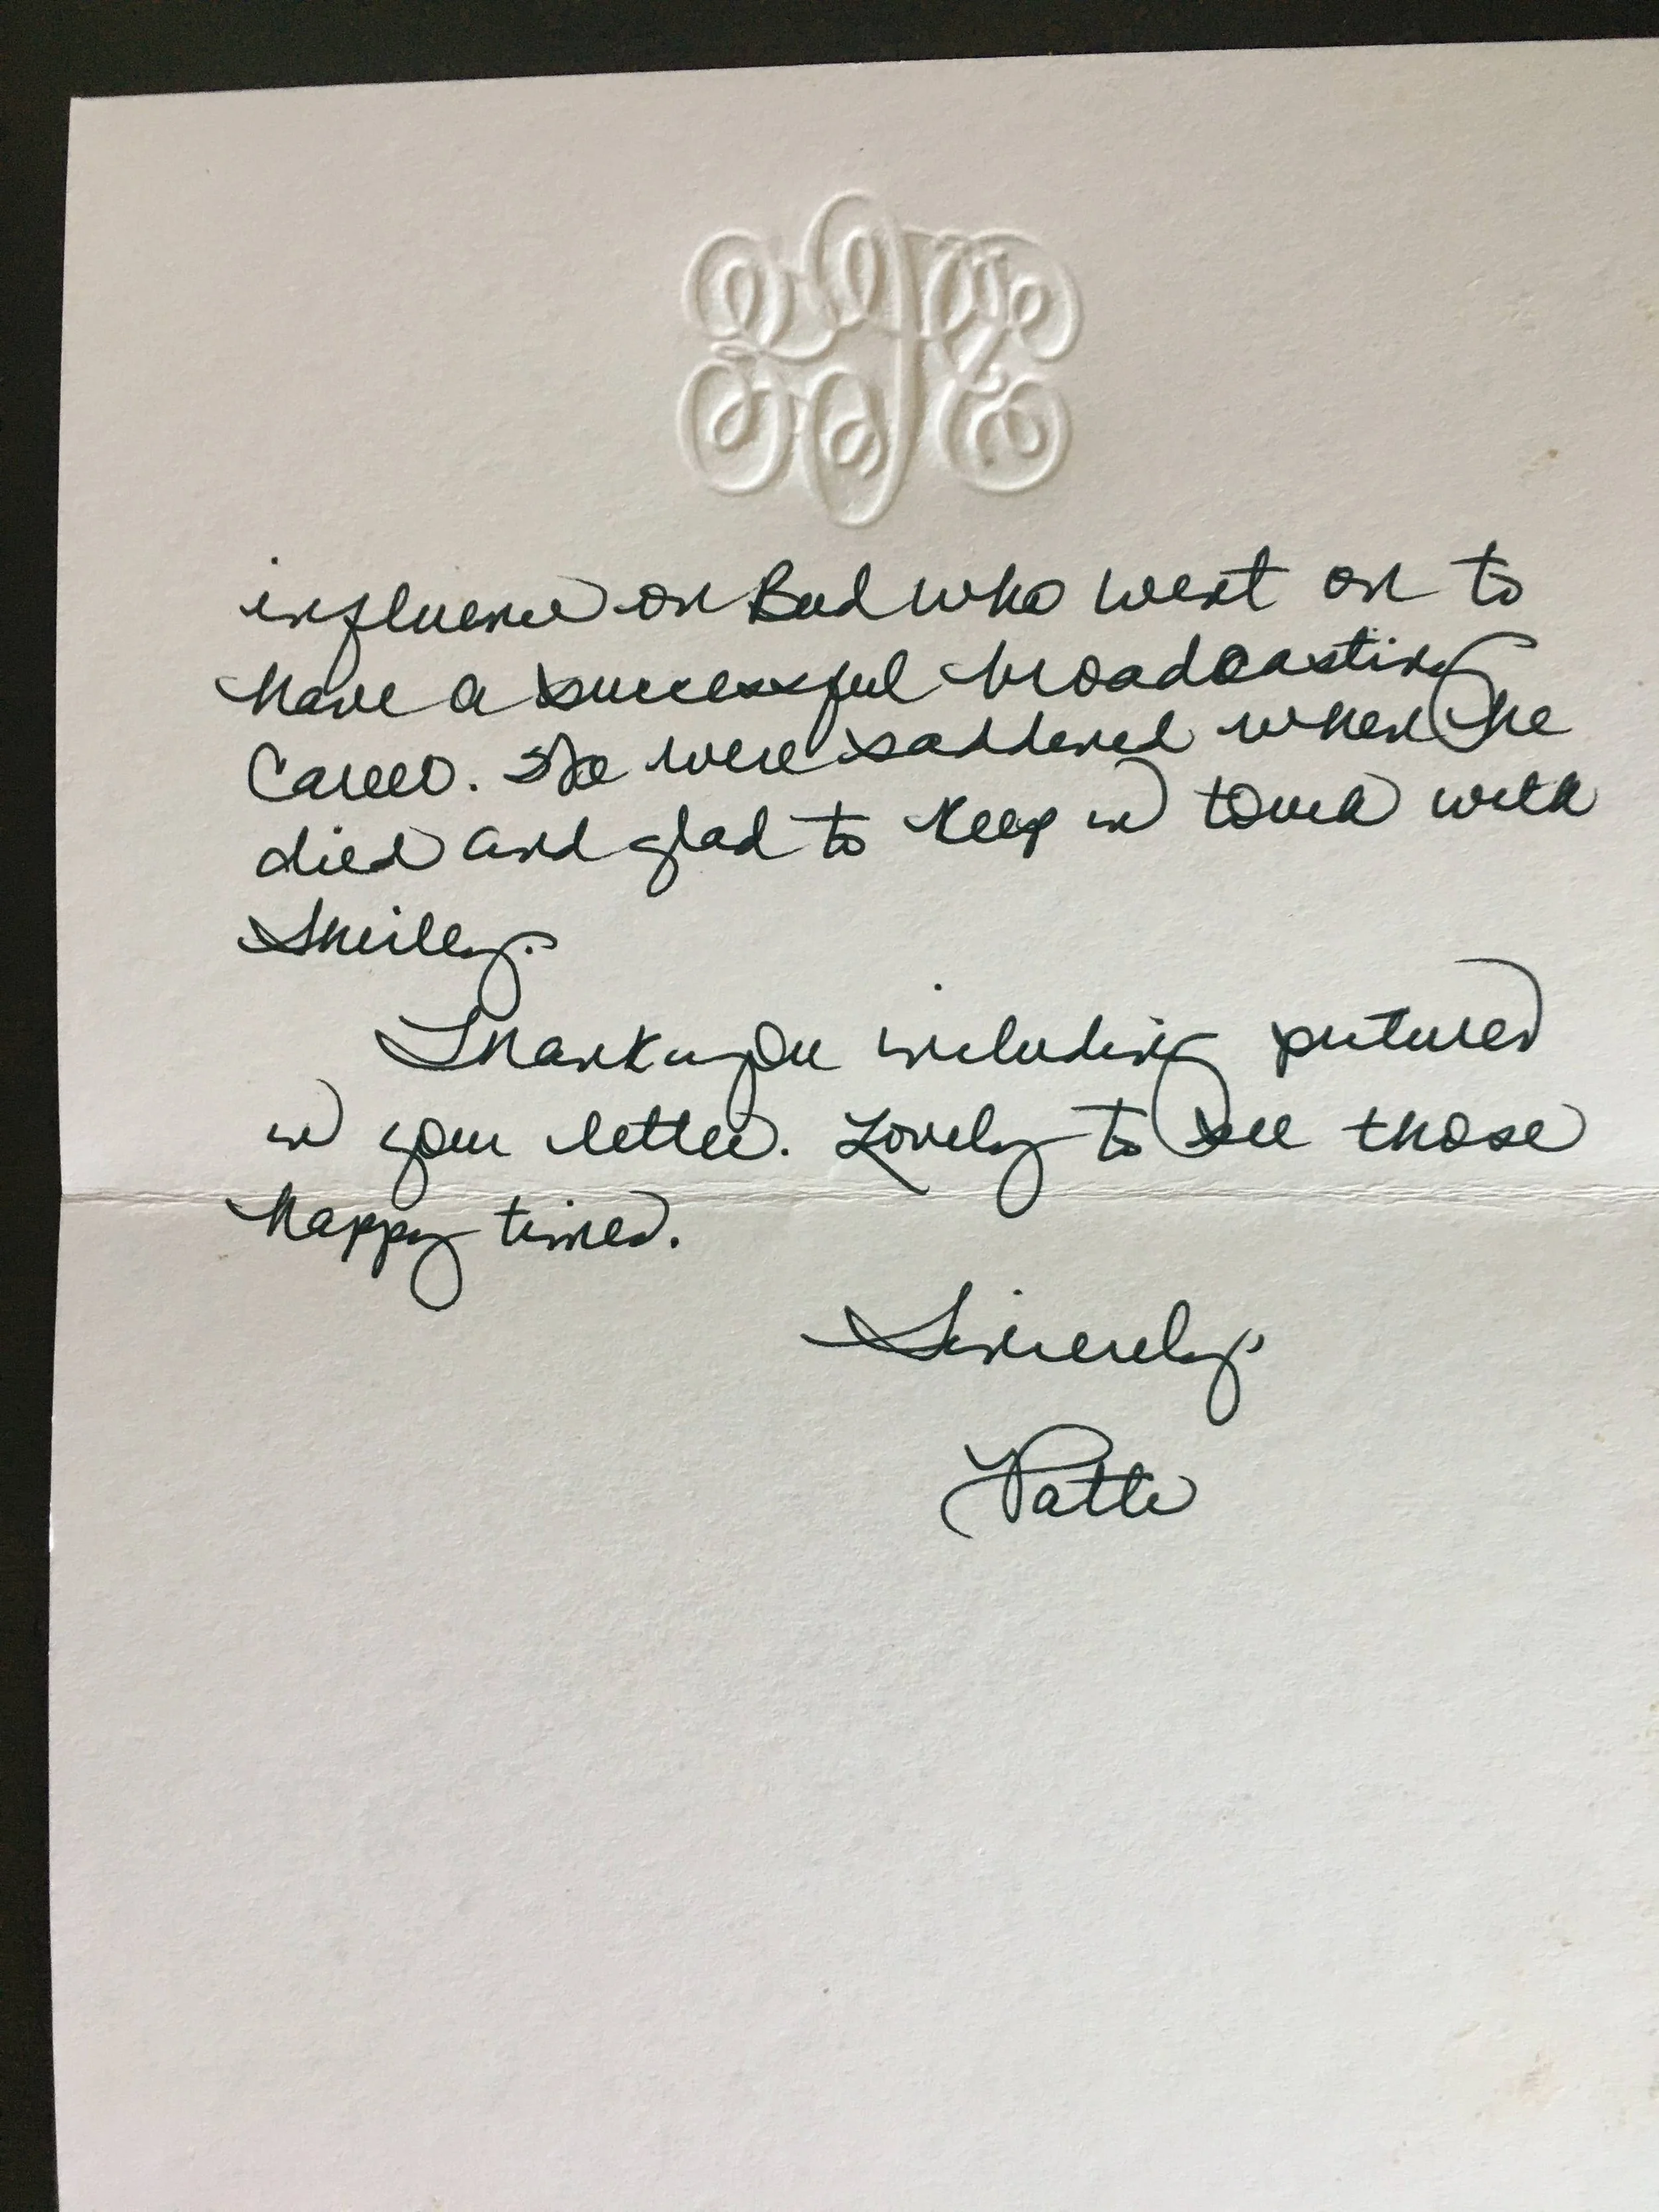 influence on Bud who went on to
have a successful broadcasting
career. We were saddened when he
died and glad to keep in touch with
Shirley.
Thank you including pictures
in your letter. Lovely to see those
happy times.
Sincerely,
Patte